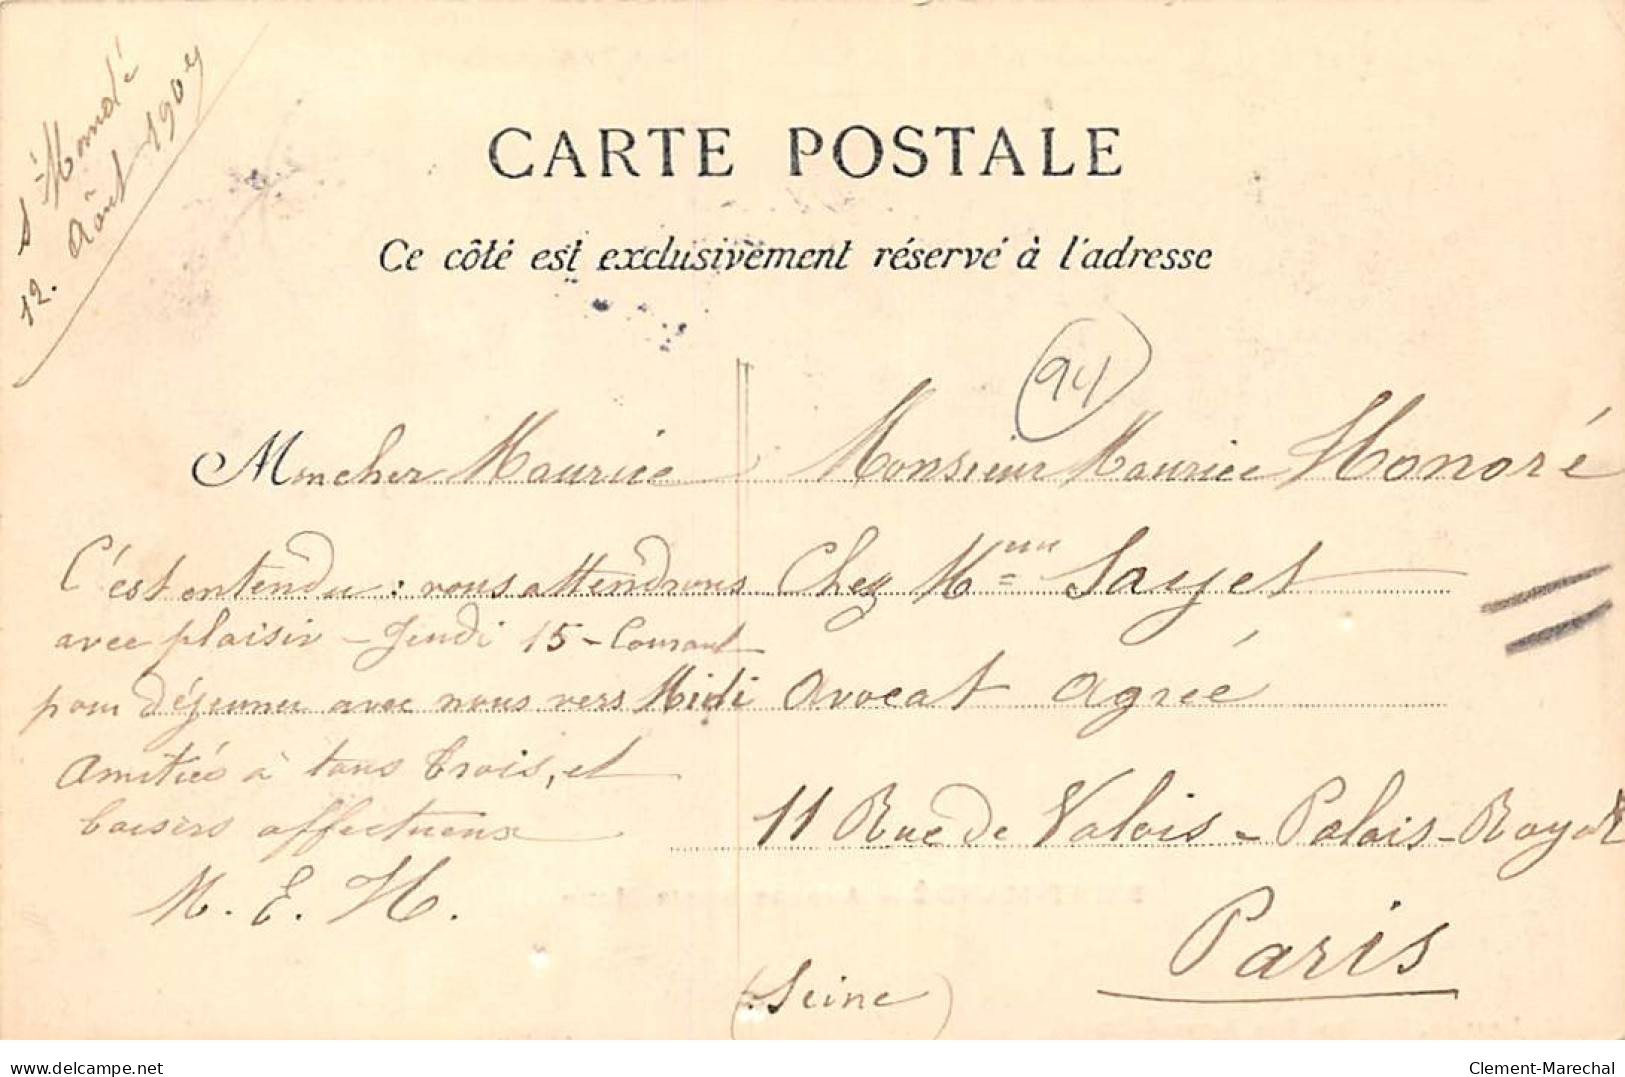 St Mandé
12. Août 1907
CARTE POSTALE
Ce côté est exclusivement réservé à l'adresse
94
Mon cher Maurice
C'est entendu : vous attendrons
avec plaisir - Jeudi 15 - Courant
pour déjeuner avec nous vers Midi
Amitiés à tous trois, et
baisers affectueux
M. E. H.
Monsieur Maurice Honoré
Chez Mme Sayet
Avocat Agréé
11 Rue de Valois - Palais-Royal
Paris
(Seine)
www.delcampe.net
Clement-Marechal